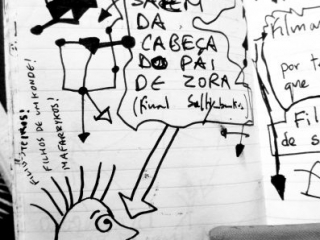 SAEM
DA
CABEÇA
DO PAI
DE ZORA
(final
FILHOS DE UM KONDE!
MAFARRYKOS!
filmar
por t
que
Fil
de s